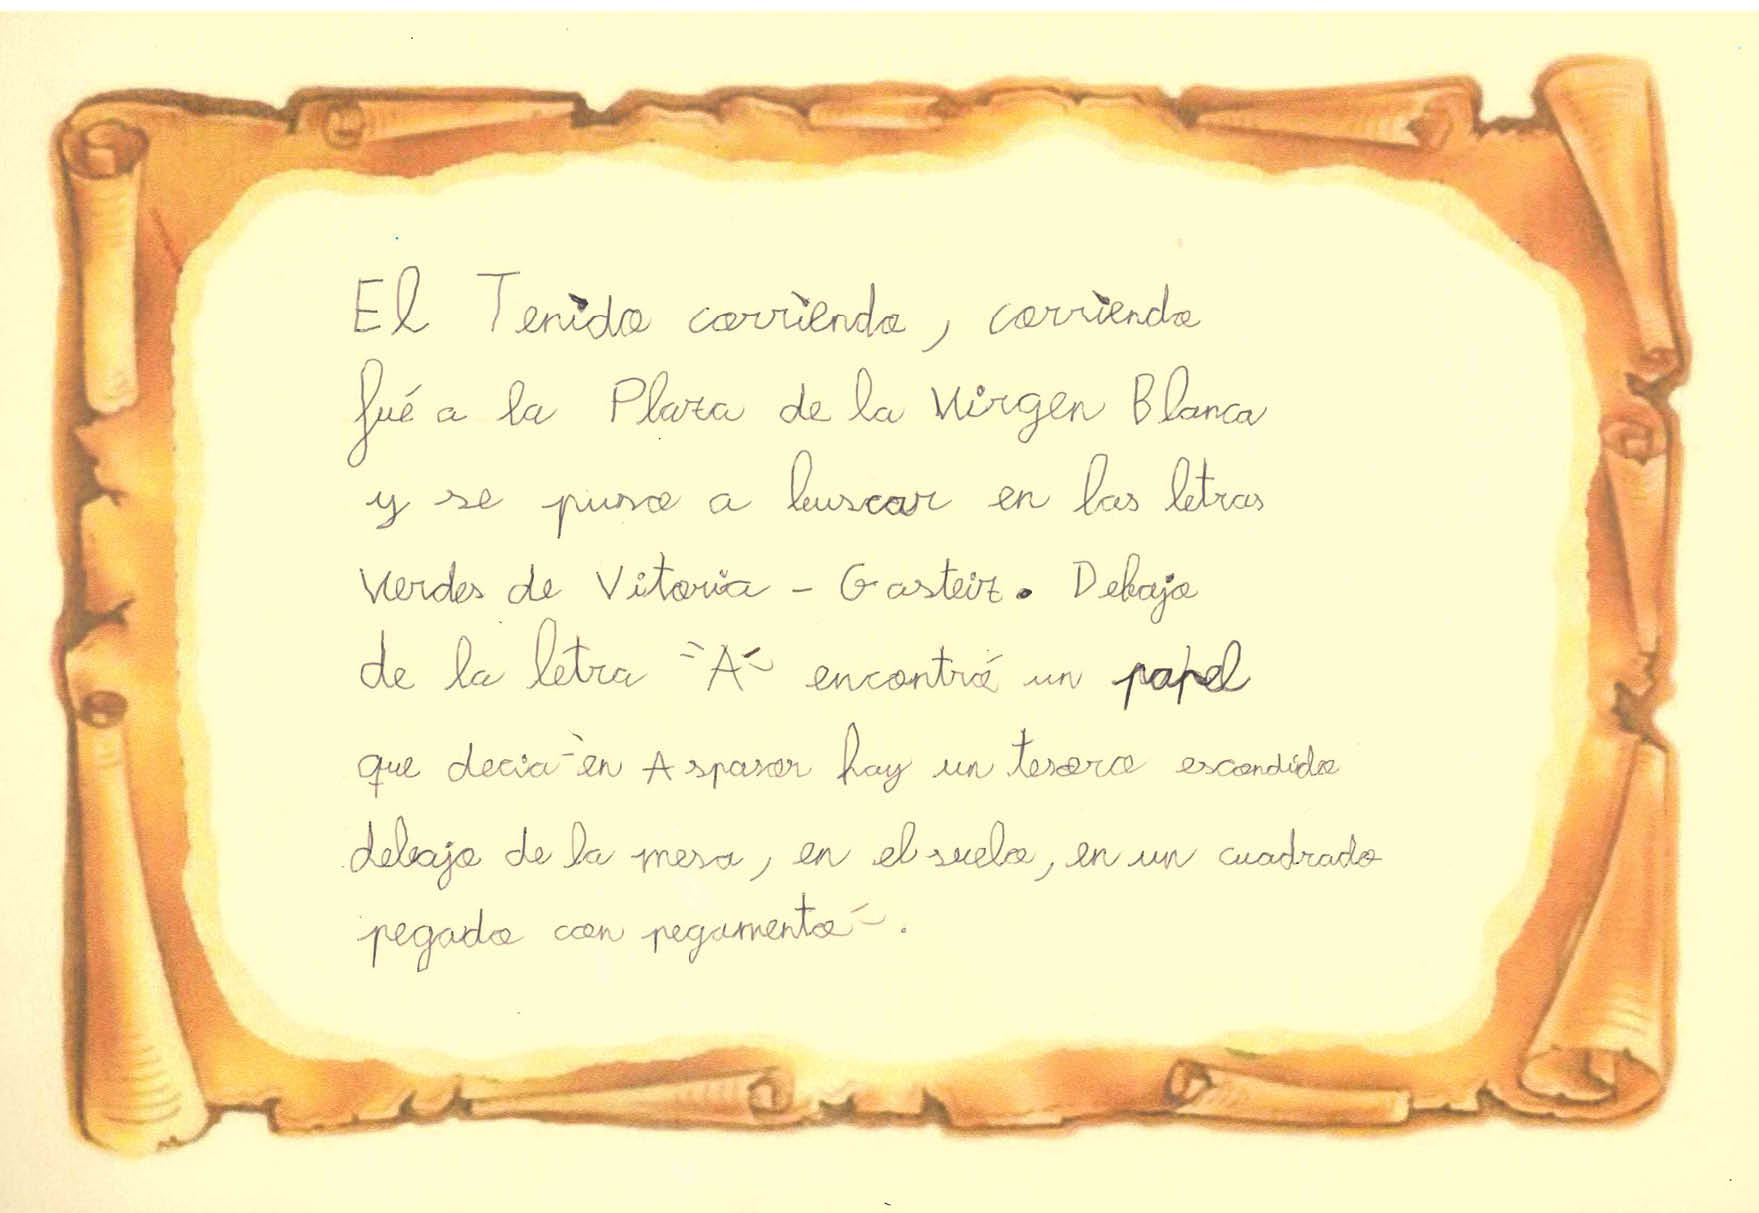 El Tenido corriendo, corriendo
fué a la Plaza de la Virgen Blanca
y se puso a buscar en las letras
verdes de Vitoria - Gasteiz. Debajo
de la letra "A" encontró un papel
que decia "en Aspasor hay un tesoro escondido
debajo de la mesa, en el suelo, en un cuadrado
pegado con pegamento".